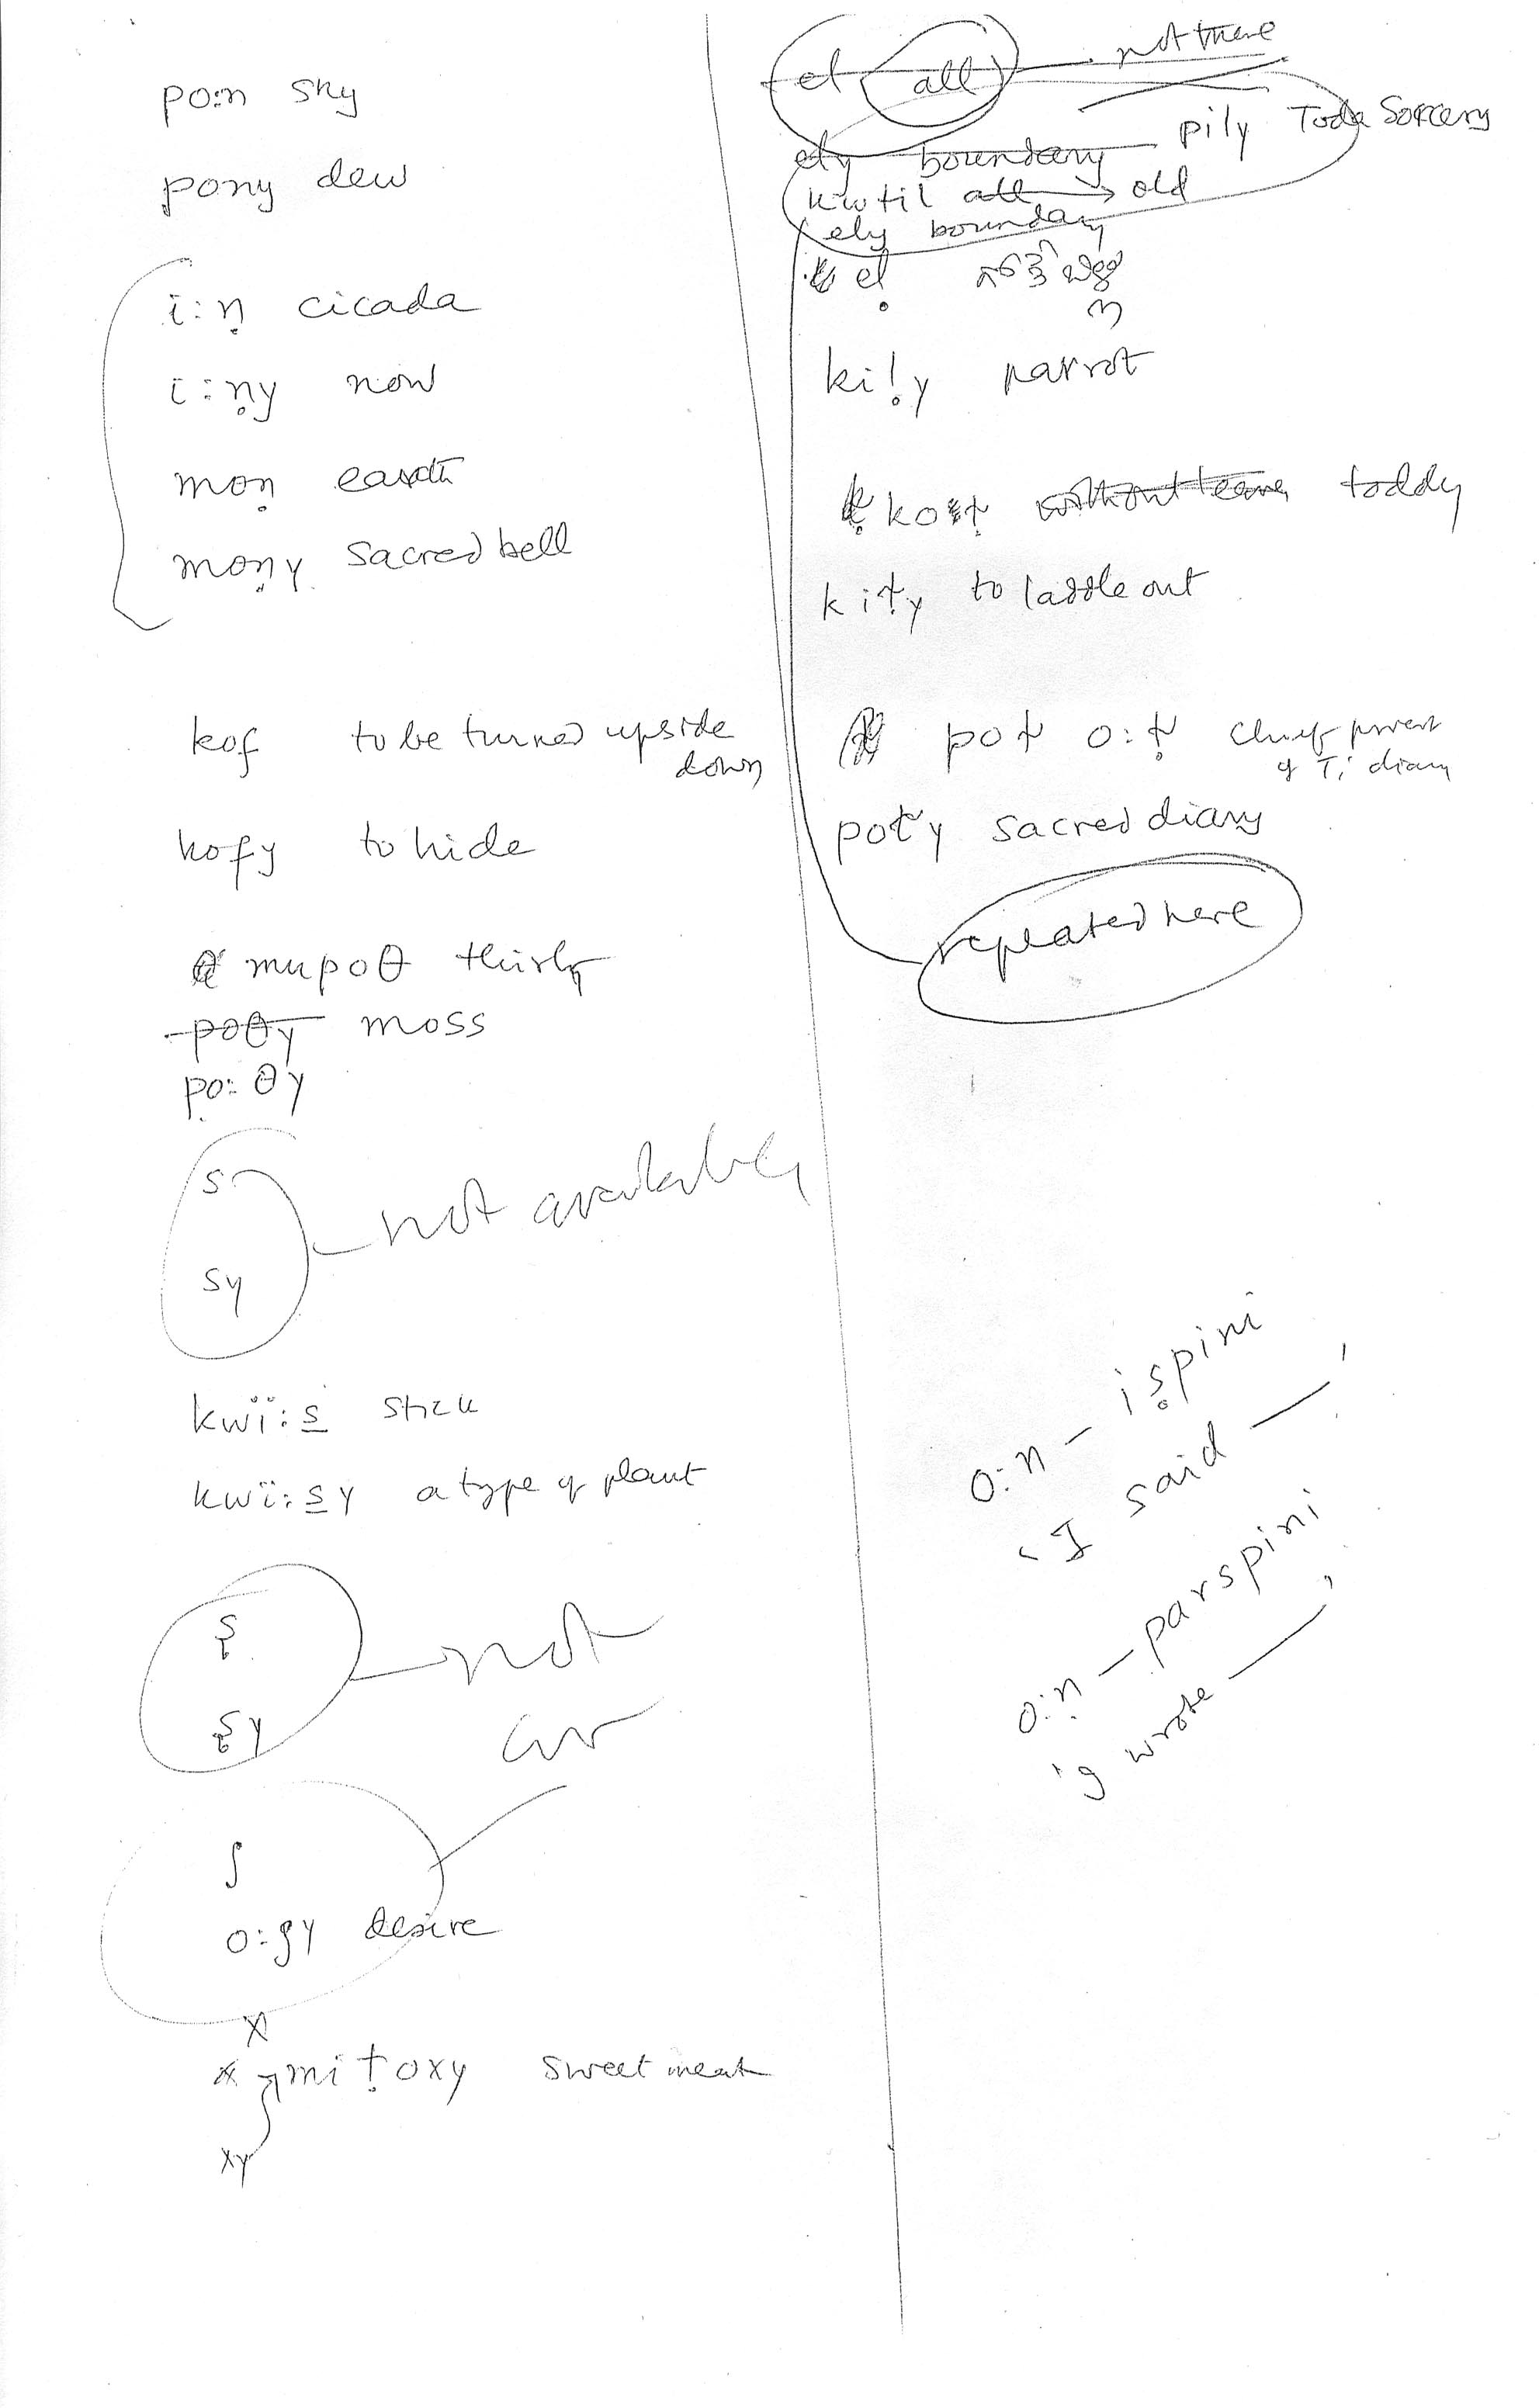 po:n sky
pony dew
i:ṇ cicada
i:ṇy now
moṇ earth
moṇy sacred bell
kof to be turned upside
down
kofy to hide
mupoθ thirty
poθy moss
po:θy
s
sy
not available
kwï:s̱ stick
kwï:s̱y a type of plant
ṣ
ṣy
not
av
ʃ
o:ʃy desire
x
x miṭoxy sweet meat
xy
el all not there
ely boundary pily Toda Sorcery
kwtil all → old
ely boundary
eḷ
kiḷy parrot
koṭ without leave toddy
kiṭy to laddle out
pot o:ṭ chief priest
of Ti diary
poty sacred diary
repeated here
o:n – iṣpini
'I said — '
o:n – parspini
'I wrote — '